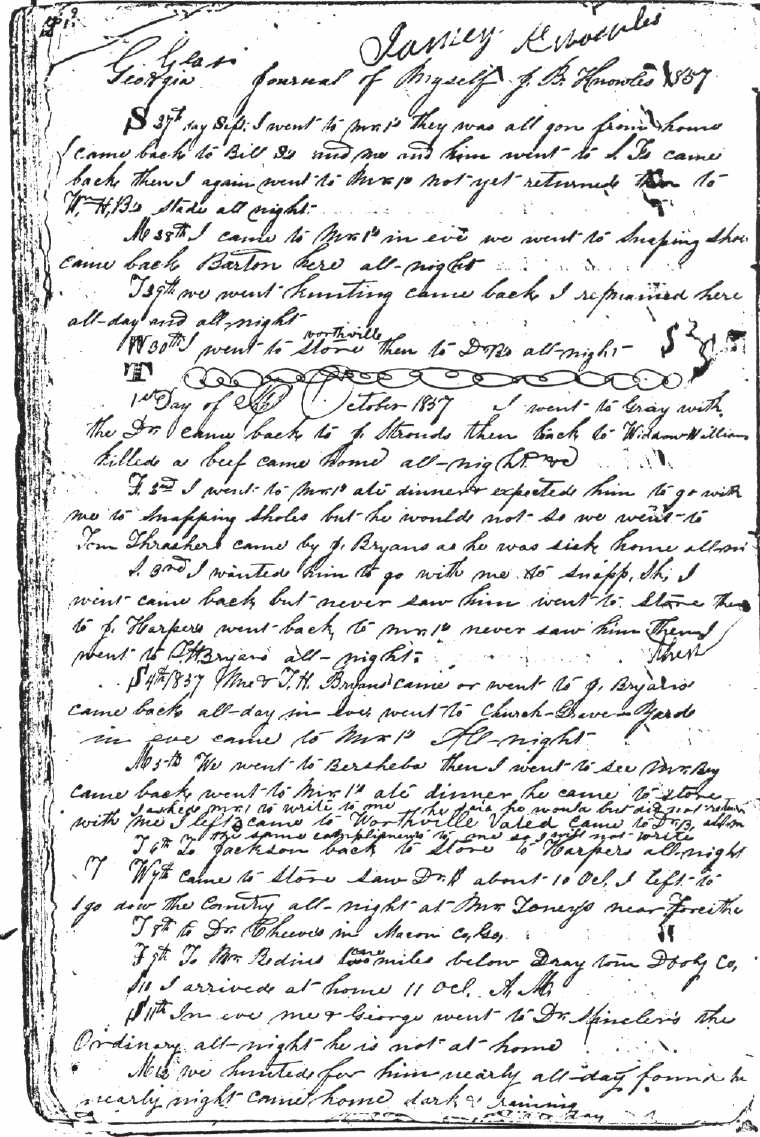 Jamey Knowles
Georgia Glasi Journal of Myself J. B. Knowles 1857
S 27th day Sept. I went to Mr. 1s they was all gon from home
I came back to Bill Ss and me and him went to came
back then I again went to Mr. 1s not yet returned to
W. H. Bs stade all night.
M 28th I came to Mr. 1s in eve we went to Snaping Shoe
came back Barton here all-night
T 29th we went hunting came back I remained here
all-day and all night
W 30th I went to worthville Store then to Dr Bs all-night
T
1st Day of October 1857 I went to Gray with
the Dr. came back to J. Strouds then back to Widdow William
killed a beef came home all-night
F. 2nd I went to Mr. 1s ate dinner & expected him to go with
me to Snapping Sholes but he woulde not so we went to
Tom Thrashers came by J. Bryans as he was sick home all-ni
S. 3rd I wanted him to go with me to Snapp. Sh. I
went came back but never saw him went to Store then
to J. Harpers went back to Mr. 1s never saw him then I
went to T H Bryans all-night.
S 4th 1857 Me & T. H. Bryans came or went to J. Bryans
came back all-day in ever went to Church-Grave-Yard
in eve came to Mr. 1s All-night
M 5th We went to Bersheba then I went to see Mr. Bry
came back went to Mr. 1s ate dinner he came to store
I asked Mr. 1 to write to me he said he would but did not return
with me I left & came to Worthville Vated came to Dr. B. all-n
the same compliments to me so I will not write
T 6th To Jackson back to Store to Harpers all-night
7 W 7th came to Store saw Dr. B about 10 Ocl. I left to
go dow the Country all-night at Mr. Toneys near Forcithe
T 8th to Dr. Cheeves in Macon Co, Ga,
F 9th To Mr. Bedins miles below Dray town Dooly Co,
S 10 I arrived at home 11 Ocl. A. M.
S 11th In eve me & George went to Dr. the
Ordinary all-night he is not at home
M 12 we hunted for him nearly all-day found h
nearly night came home dark & raining